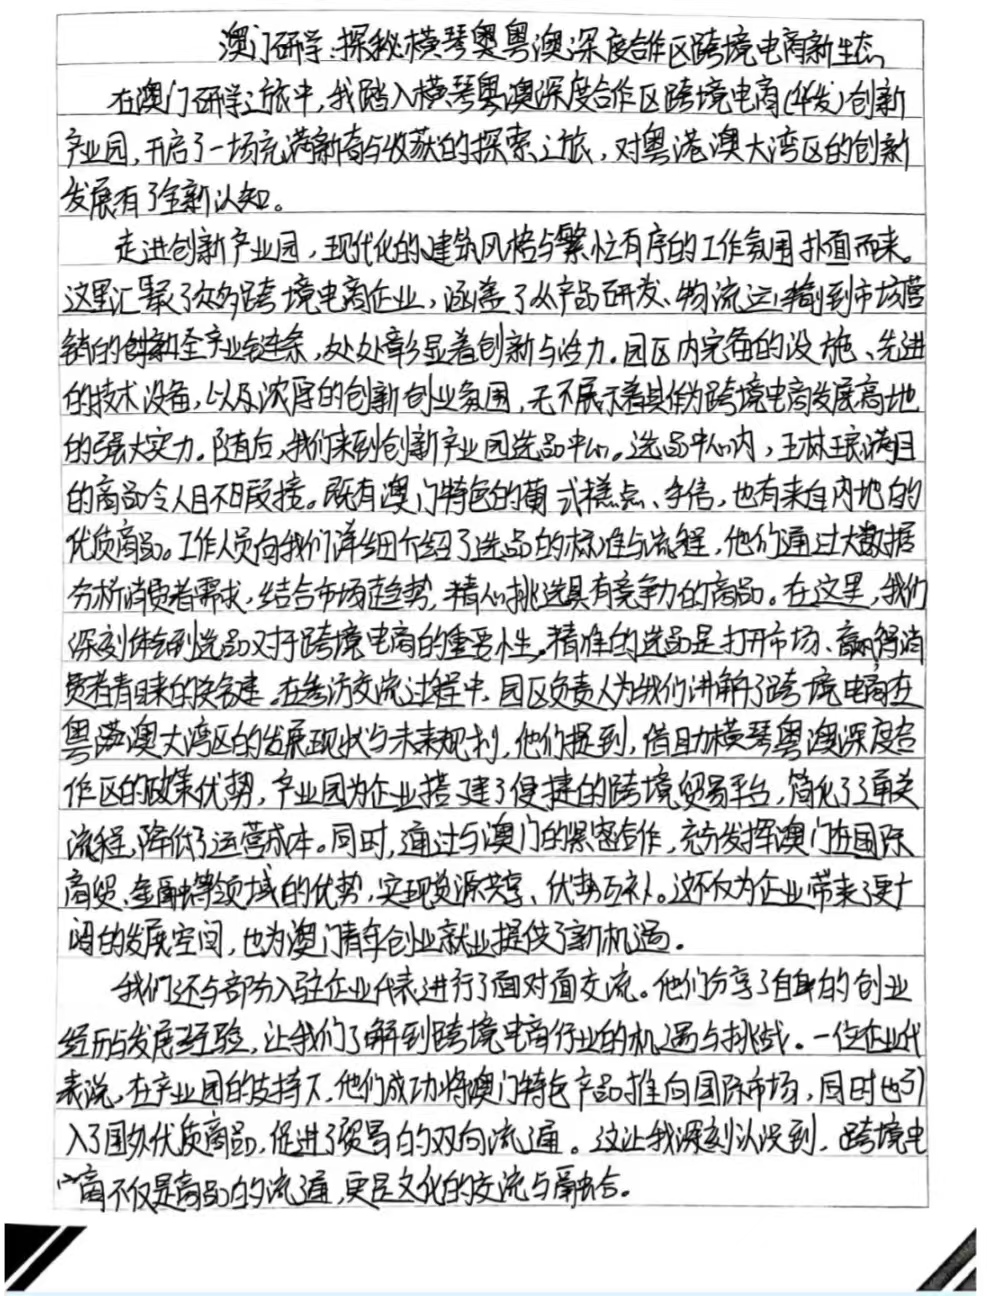 澳门研学:探秘横琴奥粤澳深度合作区跨境电商新生态
在澳门研学之旅中,我踏入横琴粤澳深度合作区跨境电商(华发)创新
产业园,开启了一场充满新奇与收获的探索之旅,对粤港澳大湾区的创新
发展有了全新认知。
走进创新产业园,现代化的建筑风格与繁忙有序的工作氛围扑面而来。
这里汇聚了众多跨境电商企业,涵盖了从产品研发、物流运输到市场营
销的创新全产业链条,处处彰显着创新与活力。园区内完备的设施、先进
的技术设备,以及浓厚的创新创业氛围,无不展示着其作为跨境电商发展高地
的强大实力。随后,我们来到创新产业园选品中心。选品中心内,玉林琅满目
的商品令人目不暇接。既有澳门特色的葡式糕点、手信,也有来自内地的
优质商品。工作人员向我们详细介绍了选品的标准与流程,他们通过大数据
分析消费者需求,结合市场趋势,精心挑选具有竞争力的商品。在这里,我们
深刻体会到选品对于跨境电商的重要性。精准的选品是打开市场、赢得消
费者青睐的关键。在参访交流过程中,园区负责人为我们讲解了跨境电商在
粤港澳大湾区的发展现状与未来规划,他们提到,借助横琴粤澳深度合
作区的政策优势,产业园为企业搭建了便捷的跨境贸易平台,简化了通关
流程,降低了运营成本。同时,通过与澳门的紧密合作,充分发挥澳门在国际
商贸、金融等领域的优势,实现资源共享、优势互补。这不仅为企业带来了更广
阔的发展空间,也为澳门青年创业就业提供了新机遇。
我们还与部分入驻企业代表进行了面对面交流。他们分享了自身的创业
经历与发展经验,让我们了解到跨境电商行业的机遇与挑战。一位企业代
表说,在产业园的支持下,他们成功将澳门特色产品推向国际市场,同时也引
入了国外优质商品,促进了贸易的双向流通。这让我深刻认识到,跨境电
商不仅是商品的流通,更是文化的交流与融合。